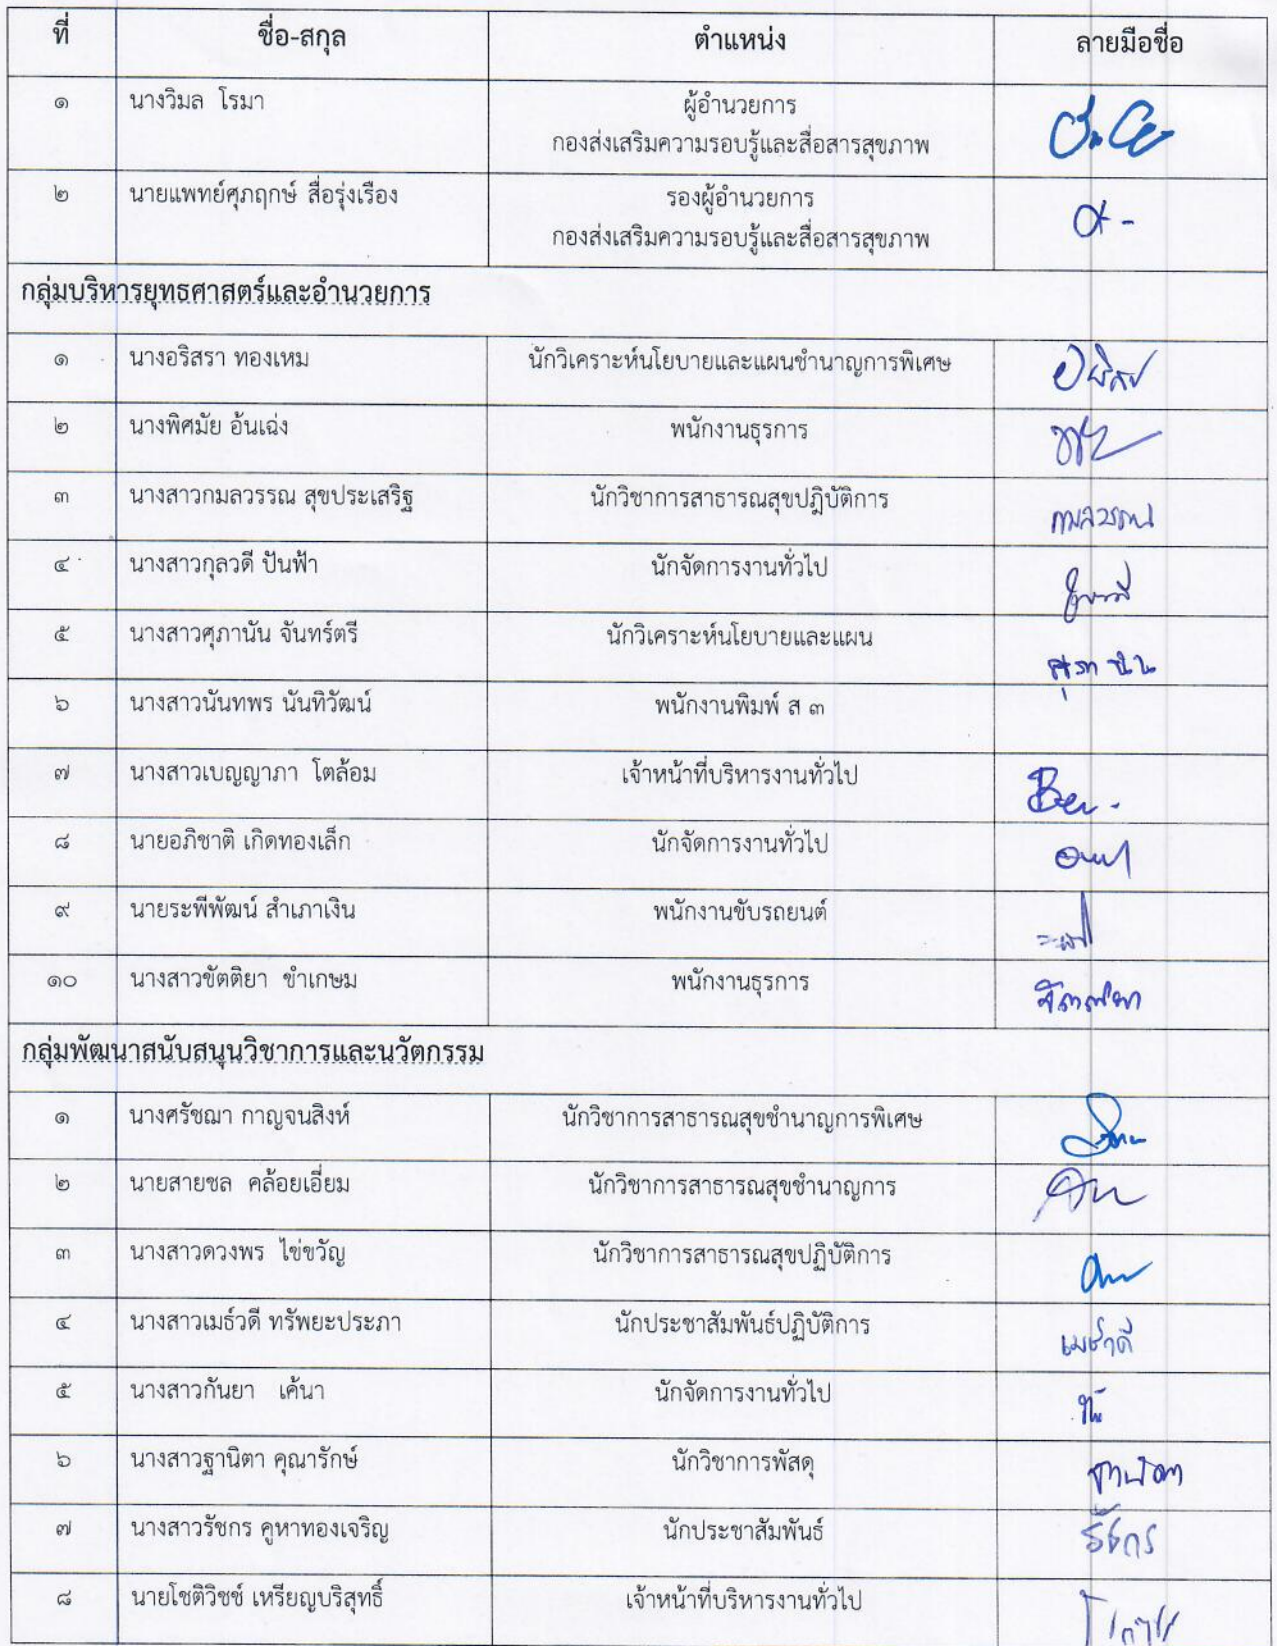 ที่ ชื่อ-สกุล ตำแหน่ง ลายมือชื่อ
๑ นางวิมล โรมา ผู้อำนวยการ
กองส่งเสริมความรอบรู้และสื่อสารสุขภาพ
๒ นายแพทย์ศุภฤกษ์ สื่อรุ่งเรือง รองผู้อำนวยการ
กองส่งเสริมความรอบรู้และสื่อสารสุขภาพ
กลุ่มบริหารยุทธศาสตร์และอำนวยการ
๑ นางอริสรา ทองเหม นักวิเคราะห์นโยบายและแผนชำนาญการพิเศษ
๒ นางพิศมัย อ้นเฉ่ง พนักงานธุรการ
๓ นางสาวกมลวรรณ สุขประเสริฐ นักวิชาการสาธารณสุขปฏิบัติการ กมลวรรณ
๔ นางสาวกุลวดี ปันฟ้า นักจัดการงานทั่วไป
๕ นางสาวศุภานัน จันทร์ตรี นักวิเคราะห์นโยบายและแผน ศุภานัน
๖ นางสาวนันทพร นันทิวัฒน์ พนักงานพิมพ์ ส ๓
๗ นางสาวเบญญาภา โตล้อม เจ้าหน้าที่บริหารงานทั่วไป Ben.
๘ นายอภิชาติ เกิดทองเล็ก นักจัดการงานทั่วไป
๙ นายระพีพัฒน์ สำเภาเงิน พนักงานขับรถยนต์
๑๐ นางสาวขัตติยา ขำเกษม พนักงานธุรการ ขัตติยา
กลุ่มพัฒนาสนับสนุนวิชาการและนวัตกรรม
๑ นางศรัชฌา กาญจนสิงห์ นักวิชาการสาธารณสุขชำนาญการพิเศษ
๒ นายสายชล คล้อยเอี่ยม นักวิชาการสาธารณสุขชำนาญการ
๓ นางสาวดวงพร ไข่ขวัญ นักวิชาการสาธารณสุขปฏิบัติการ
๔ นางสาวเมธ์วดี ทรัพยะประภา นักประชาสัมพันธ์ปฏิบัติการ เมธ์วดี
๕ นางสาวกันยา เค้นา นักจัดการงานทั่วไป
๖ นางสาวฐานิตา คุณารักษ์ นักวิชาการพัสดุ ฐานิตา
๗ นางสาวรัชกร คูหาทองเจริญ นักประชาสัมพันธ์ รัชกร
๘ นายโชติวิชช์ เหรียญบริสุทธิ์ เจ้าหน้าที่บริหารงานทั่วไป